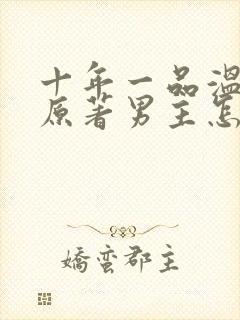 十年一品温
原著男主怎
嬌蛮郡主